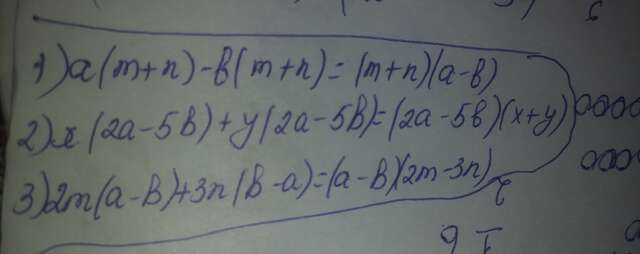 1) a(m+n)-в(m+n)=(m+n)(a-в)
2) x(2a-5в)+y(2a-5в)=(2a-5в)(x+y)
3) 2m(a-в)+3n(в-a)=(a-в)(2m-3n)